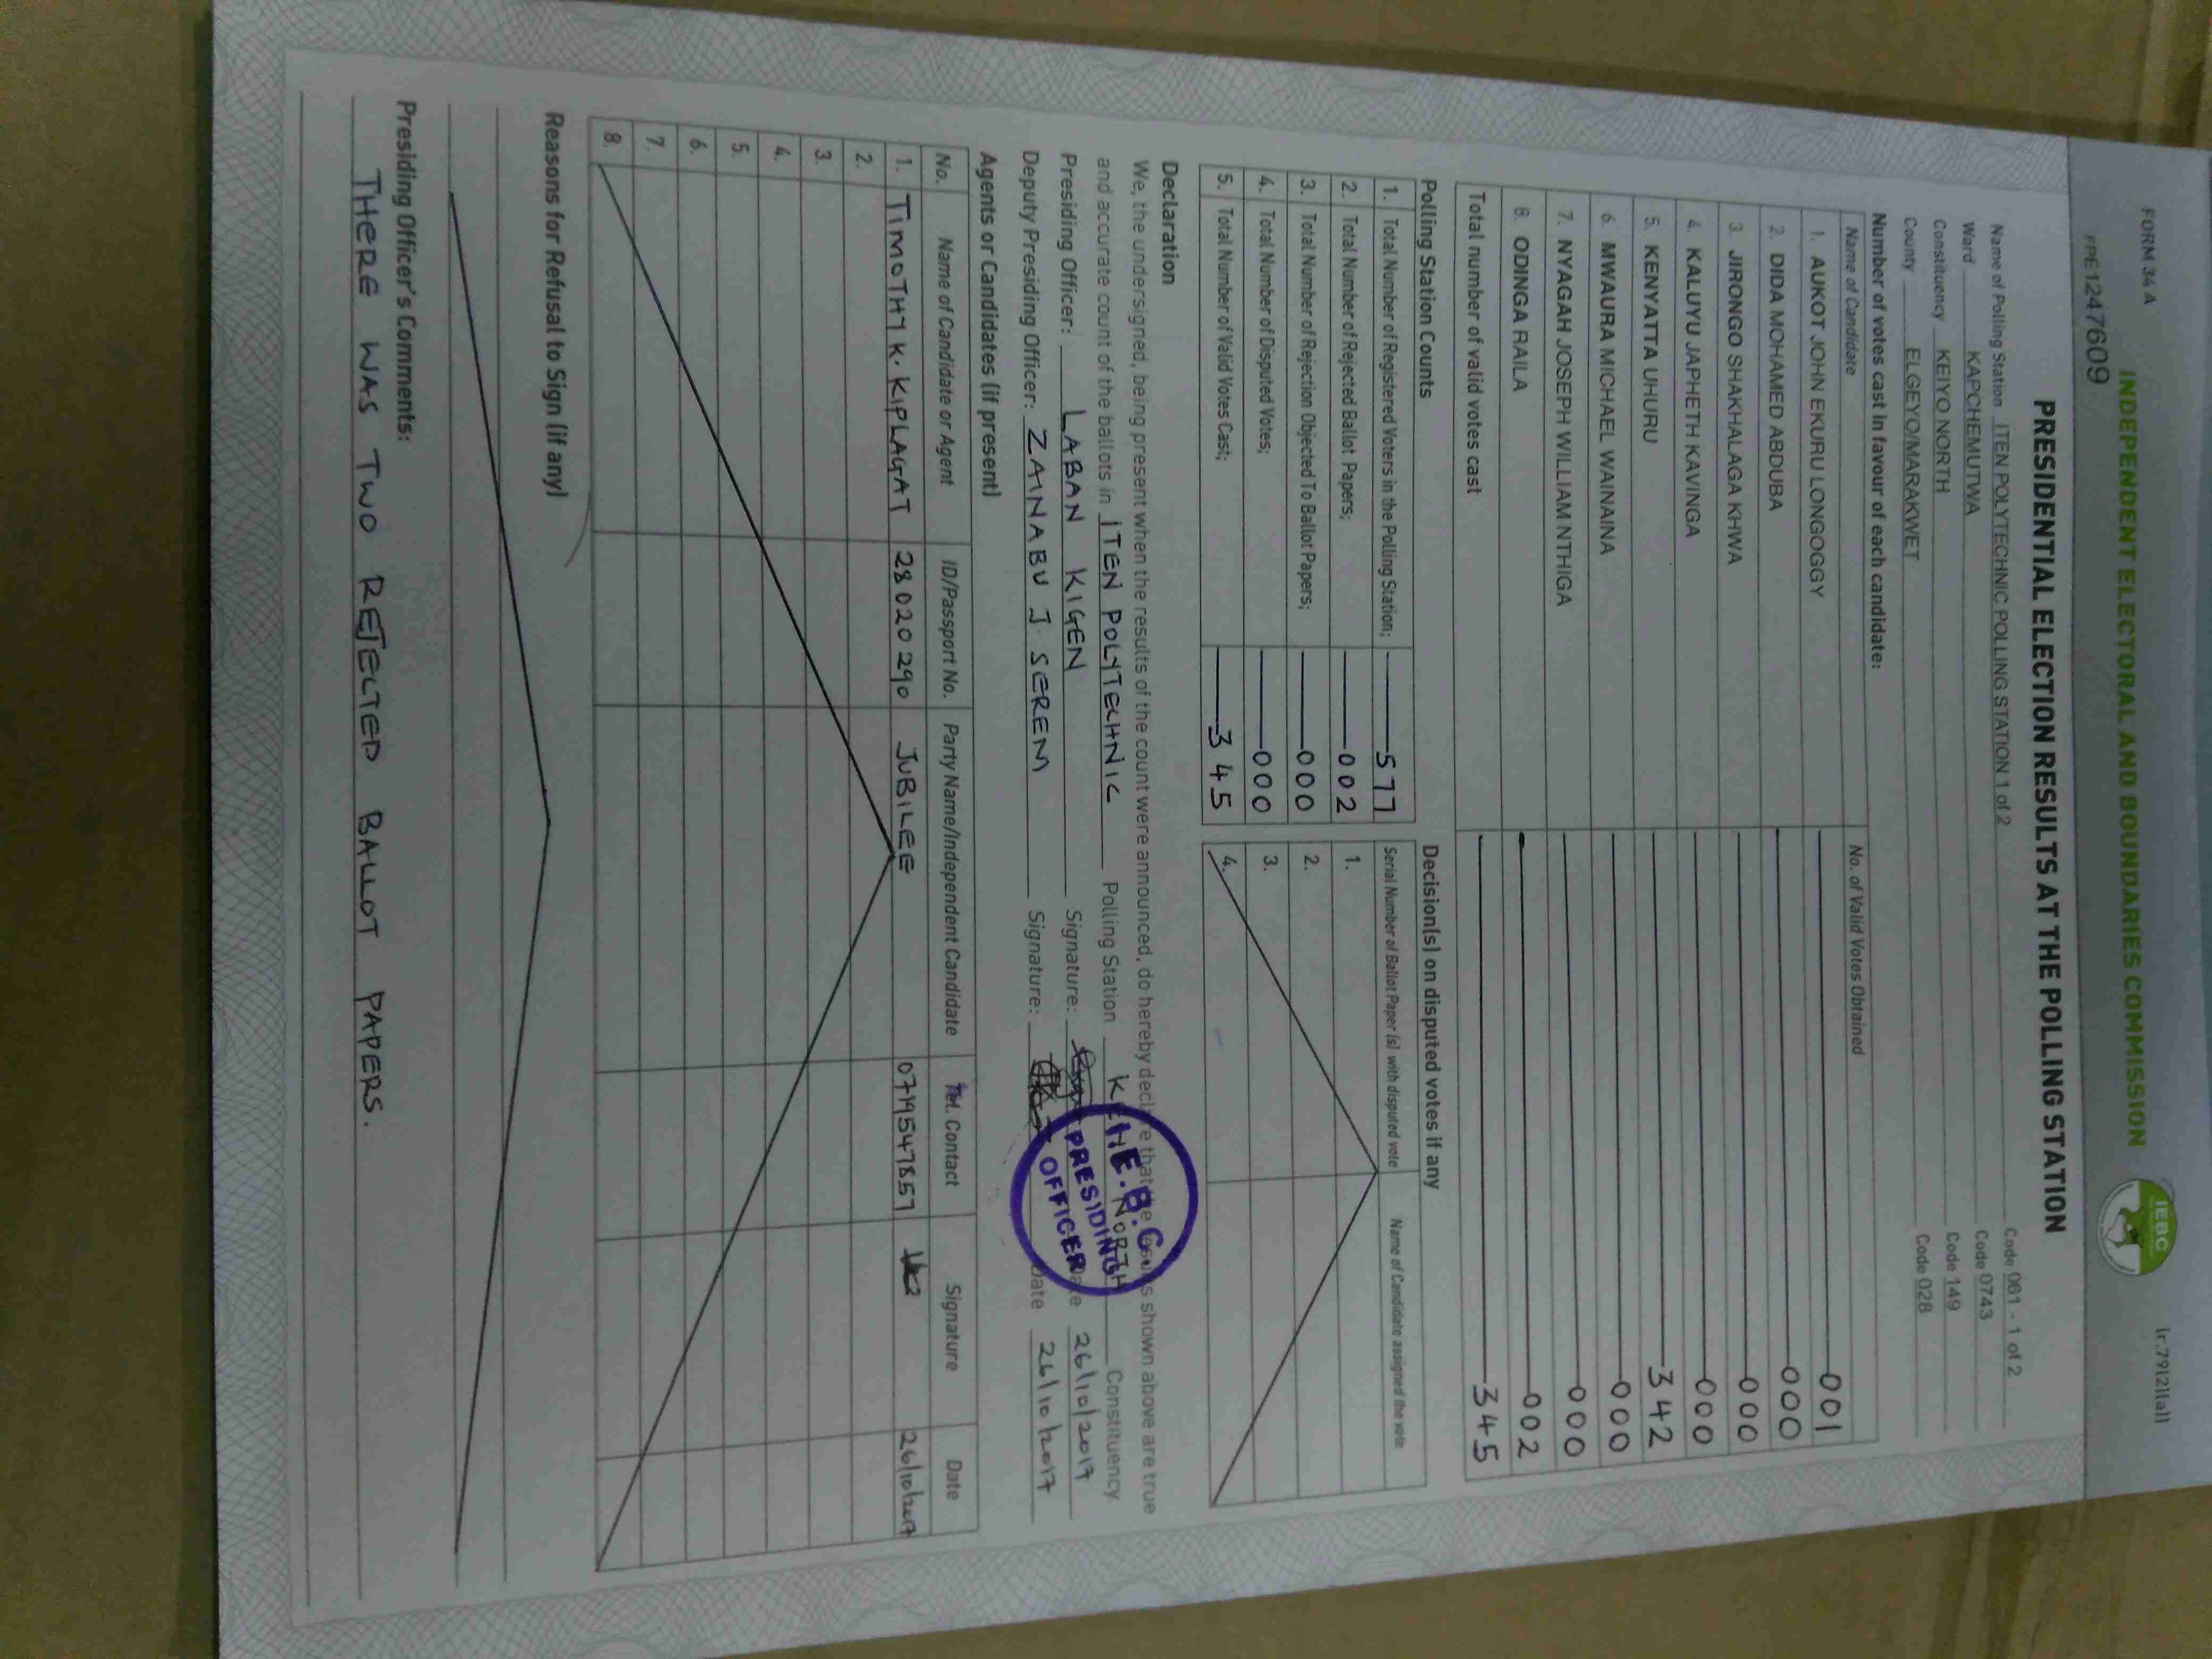 FORM 34 A
INDEPENDENT ELECTORAL AND BOUNDARIES COMMISSION
IEBC
(r.79(2)(a))
PPE1247609
PRESIDENTIAL ELECTION RESULTS AT THE POLLING STATION
Name of Polling Station ITEN POLYTECHNIC POLLING STATION 1 of 2 Code 061 - 1 of 2
Ward KAPCHEMUTWA Code 0743
Constituency KEIYO NORTH Code 149
County ELGEYO/MARAKWET Code 028
Number of votes cast in favour of each candidate:
Name of Candidate No. of Valid Votes Obtained
1. AUKOT JOHN EKURU LONGOGGY 001
2. DIDA MOHAMED ABDUBA 000
3. JIRONGO SHAKHALAGA KHWA 000
4. KALUYU JAPHETH KAVINGA 000
5. KENYATTA UHURU 342
6. MWAURA MICHAEL WAINAINA 000
7. NYAGAH JOSEPH WILLIAM NTHIGA 000
8. ODINGA RAILA 002
Total number of valid votes cast 345
Polling Station Counts
1. Total Number of Registered Voters in the Polling Station; 577
2. Total Number of Rejected Ballot Papers; 002
3. Total Number of Rejection Objected To Ballot Papers; 000
4. Total Number of Disputed Votes; 000
5. Total Number of Valid Votes Cast; 345
Decision(s) on disputed votes if any
Serial Number of Ballot Paper (s) with disputed vote Name of Candidate assigned the vote
1.
2.
3.
4.
Declaration
We, the undersigned, being present when the results of the count were announced, do hereby declare that the results shown above are true
and accurate count of the ballots in ITEN POLYTECHNIC Polling Station NORTH Constituency.
Presiding Officer: LABAN KIGEN Signature: Date 26/10/2017
Deputy Presiding Officer: ZAINABU J. SEREM Signature: Date 26/10/2017
PRESIDING
OFFICER
Agents or Candidates (if present)
No. Name of Candidate or Agent ID/Passport No. Party Name/Independent Candidate Tel. Contact Signature Date
1. TIMOTHY K. KIPLAGAT 28020290 JUBILEE 0719547857 26/10/2017
2.
3.
4.
5.
6.
7.
8.
Reasons for Refusal to Sign (if any)
Presiding Officer's Comments:
THERE WAS TWO REJECTED BALLOT PAPERS.